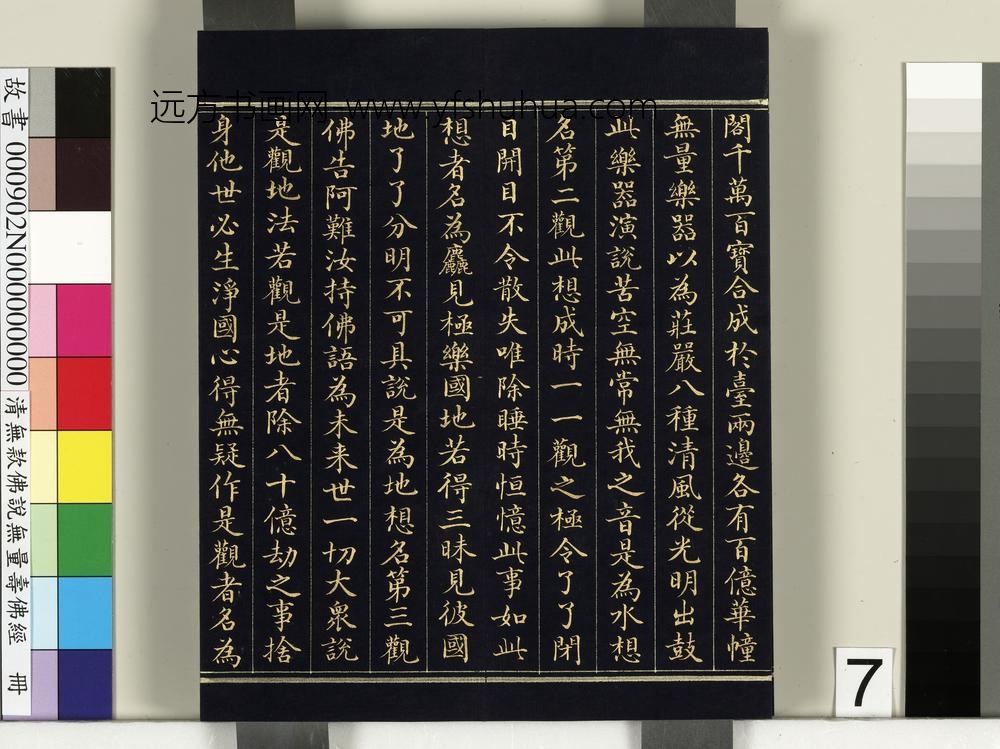 远方书画网 www.yfshuhua.com
閣千萬百寶合成於臺兩邊各有百億華幢
無量樂器以為莊嚴八種清風從光明出鼓
此樂器演説苦空無常無我之音是為水想
名第二觀此想成時一一觀之極令了了閉
目開目不令散失唯除睡時恒憶此事如此
想者名為麤見極樂國地若得三昧見彼國
地了了分明不可具説是為地想名第三觀
佛告阿難汝持佛語為未来世一切大衆説
是觀地法若觀是地者除八十億劫之事捨
身他世必生淨國心得無疑作是觀者名為
故書 000902N000000000 清無款佛說無量壽佛經 冊
7